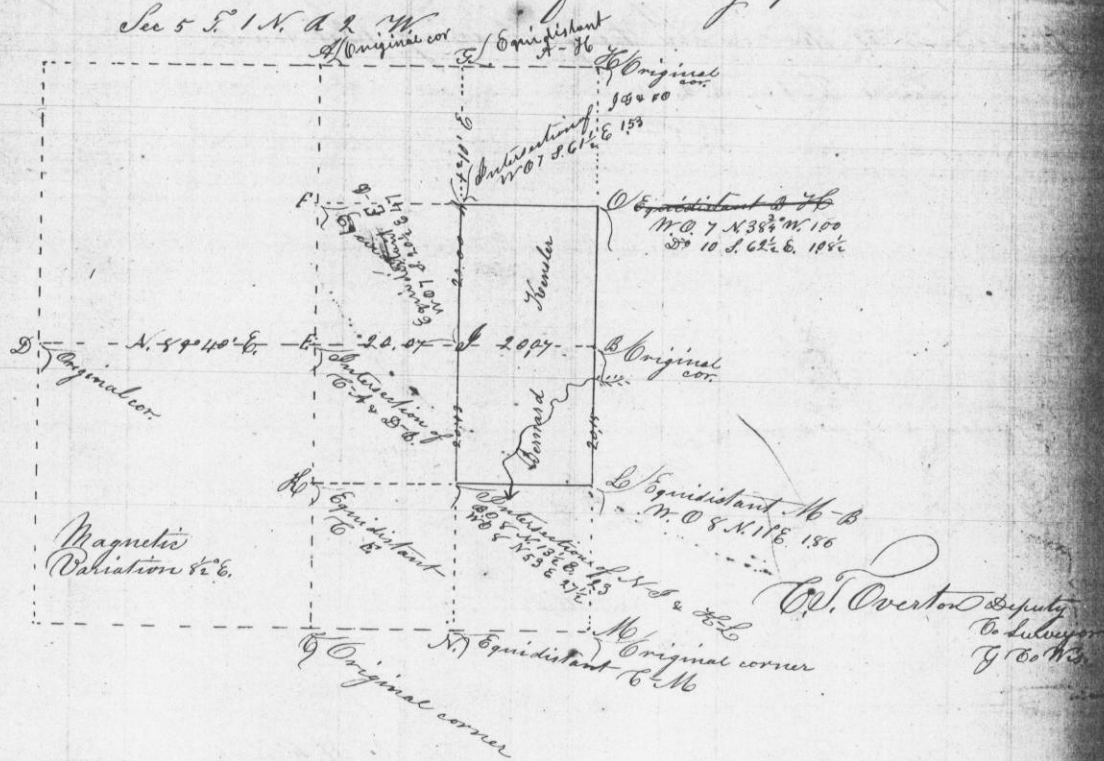 Sec 5 T. 1 N. R 2 W.
A Original cor
G Equidistant
A - H
H Original
cor.
Intersection of
W O 7 S. 61½ E 153
F
Equidistant
O Equidistant B H
W. O. 7 N 38¾° W. 100
Do 10 S. 62½ E. 108½
Kensler
D
N. 89° 40' E.
E
20.07
I
20,07
B Original
cor.
Original cor.
Intersection of
C-A & D-B.
Bernard
K
Equidistant
C E
L Equidistant M - B
W. O 8 N. 11° E 186
Intersection of N I & K-L
W O 8 N 53 E 27½
Magnetic
Variation 8½° E.
C. T. Overton Deputy
Co Surveyor
G Co Wis.
C Original corner
N. Equidistant
C - M
M Original corner